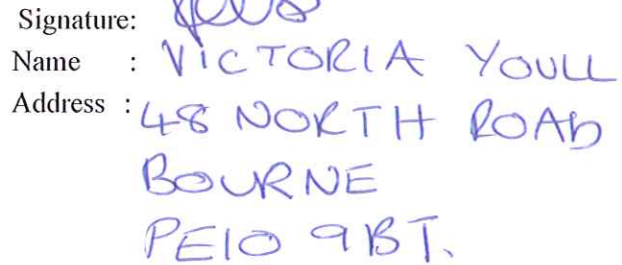 Signature:
Name : VICTORIA YOULL
Address : 48 NORTH ROAD
BOURNE
PE10 9BT.